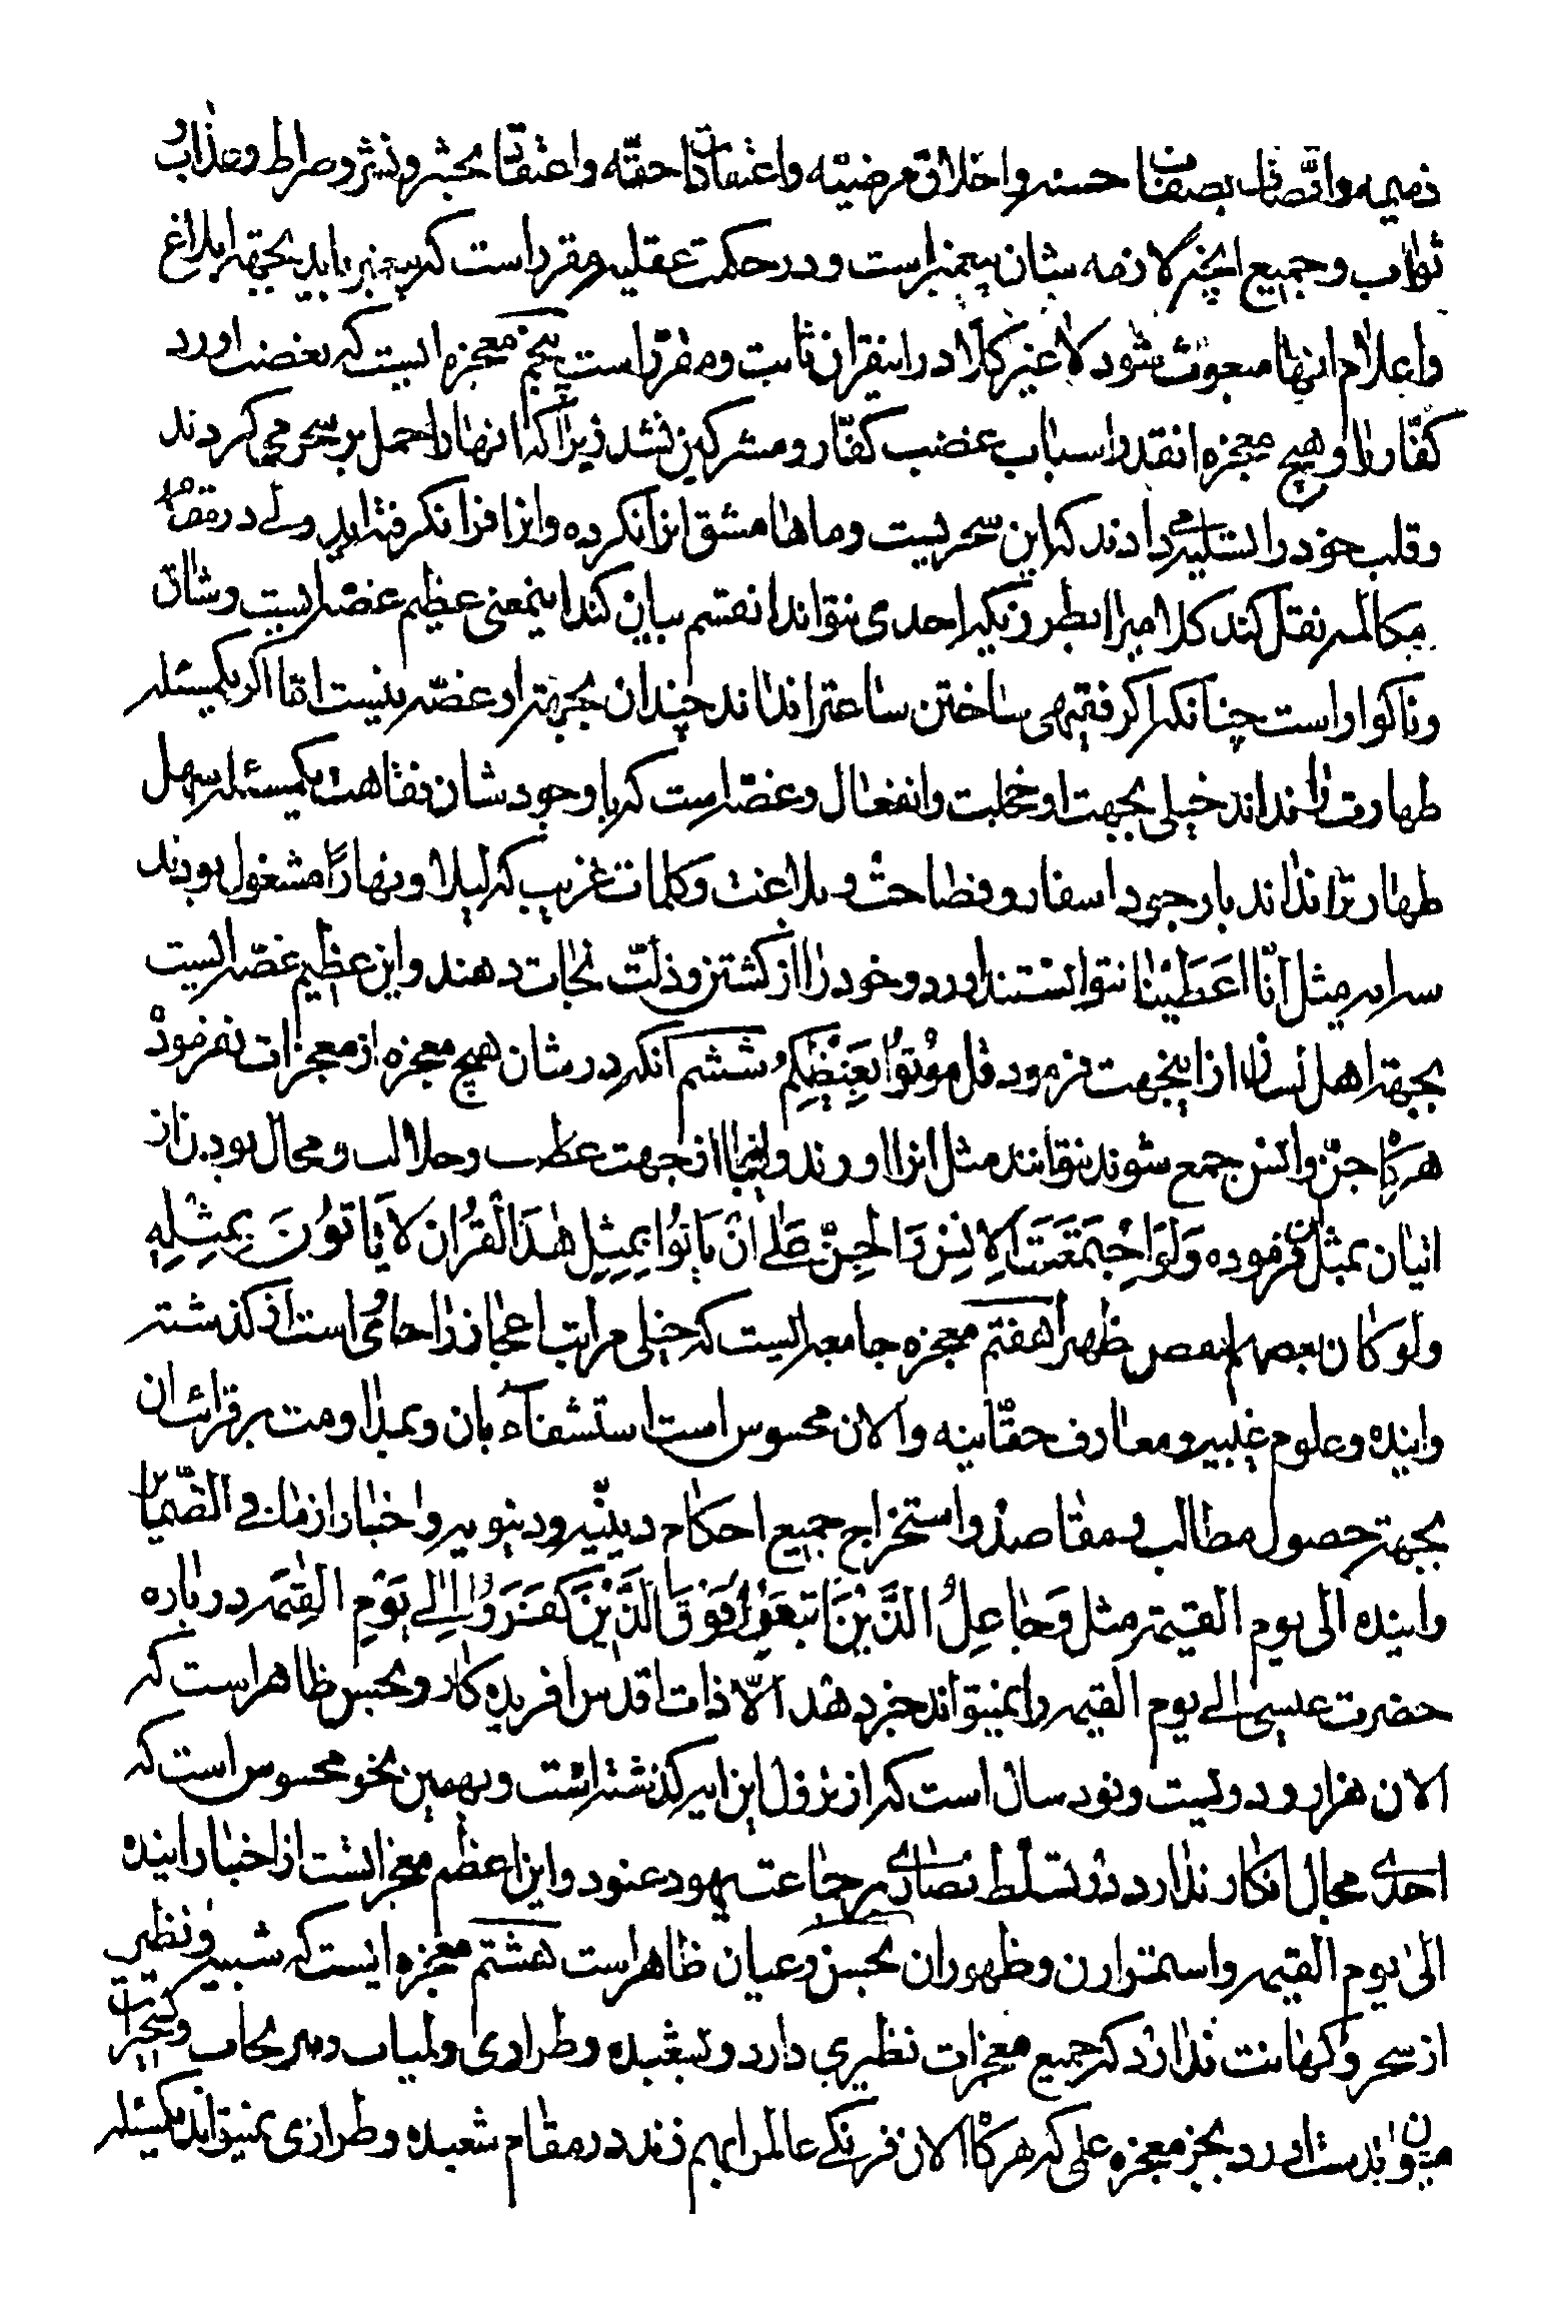 ذمیمه و اتّصاف بصفات حسنه و اخلاق مرضیّه و اعتقادات حقّه و اعتقاد بحشر و نشر و صراط و عذاب و
ثواب و جمیع اینچه لازمه شان پیغمبر است و در حکمت عقلیه مقرر است که پیغمبر باید بجهة ابلاغ
و اعلام انها مبعوث شود لا غیر کلّا در این قران ثابت و مقرّر است پنجم معجزه ایست که بغضب اورد
کفّار را و هیچ معجزه انقدر اسباب غضب کفّار و مشرکین نشد زیرا که انها را حمل بر سحر می کردند
و قلب خود را تسلیه می دادند که این سحریست و ماها مشق انرا نکرده و انرا فرا نگرفته ایم ولے در مقام
مکالمه نقل کند کلامیرا بطرزیکه احدی نتواند انقسم بیان کند اینمعنی عظیم غصّه ایست و شاق
و ناکوار است چنانکه اکر فقیهی ساختن ساعترا نداند چندان بجهة او غصّه نیست امّا اکر یکمسئله
طهارت را نداند خیلی بجهت او خجلت و انفعال و غصّه است که با وجود شان فقاهت یکمسئله سهل
طهارترا نداند با وجود اسفار و فصاحت و بلاغت و کلمات غریب که لیلا و نهارًا مشغول بودند
سه ایه مثل انّا اعَطَیْنا نتوانستند اورد و خود را از کشتن و ذلّت نجات دهند و این عظیم غصّه ایست
بجهة اهل لسان از اینجهت فرمود قل موُتوُا بِغَیْظِکُمْ ششم انکه در شان هیچ معجزه از معجزات نفرمود
هرکاه جنّ و انس جمع شوند نتوانند مثل انرا اورند و اینجا از جهت عظمت و جلالت و محال بودن از
اتیان بمثل ان فرموده وَلَوِاجْتَمَعَتِ الاِنِسُ وَالجِنُّ عَلے اَنْ یَاتوُا بِمِثِلِ هٰذَا الْقُرُانِ لاَ یَاتوُنَ بِمِثِلِهِ
ولو کان بعضهم لبعض ظهیرا هفتم معجزه جامعه ایست که خیلی مراتب اعجاز را حاوی است از کذشته
و اینده و علوم غیبیه و معارف حقّانیه و الان محسوس است استشفآء بان و بمداومت بر قرائت ان
بجهة حصول مطالب و مقاصد و استخراج جمیع احکام دینیّه و دنیویه و اخبار از ما فی الضّمایر
و اینده الی یوم القیمة مثل وَجاعِلُ الَّذینَ اتَّبَعوُکَ فَوْقَ الَّذینَ کَفَروُا اِلٰے یَوْمِ القِیٰمَه در باره
حضرت عیسی الے یوم القیمه را نمیتواند خبر دهد الّا ذات اقدس افریده کار و بحس ظاهر است که
الان هزار و دویست و نود سال است که از نزول این ایه کذشته است و بهمین نحو محسوس است که
احدی مجال انکار ندارد در تسلّط نصاری بر جماعت یهود عنود و این اعظم معجزاتست از اخبار اینده
الیٰ یوم القیمه و استمرار ان و ظهور ان بحسن و عیان ظاهر است هشتم معجزه ایست که شبیه و نظیری
از سحر و کهانت ندارد که جمیع معجزات نظیری دارد و بشعبده و طراری و لمیاب و سحاب و تسخیرات
میتوان بدست اورد بجز معجزه علمی که هرکاه الان فرنکے عالم را بهم زند در مقام شعبده و طرازی نمیتواند یکمسئله